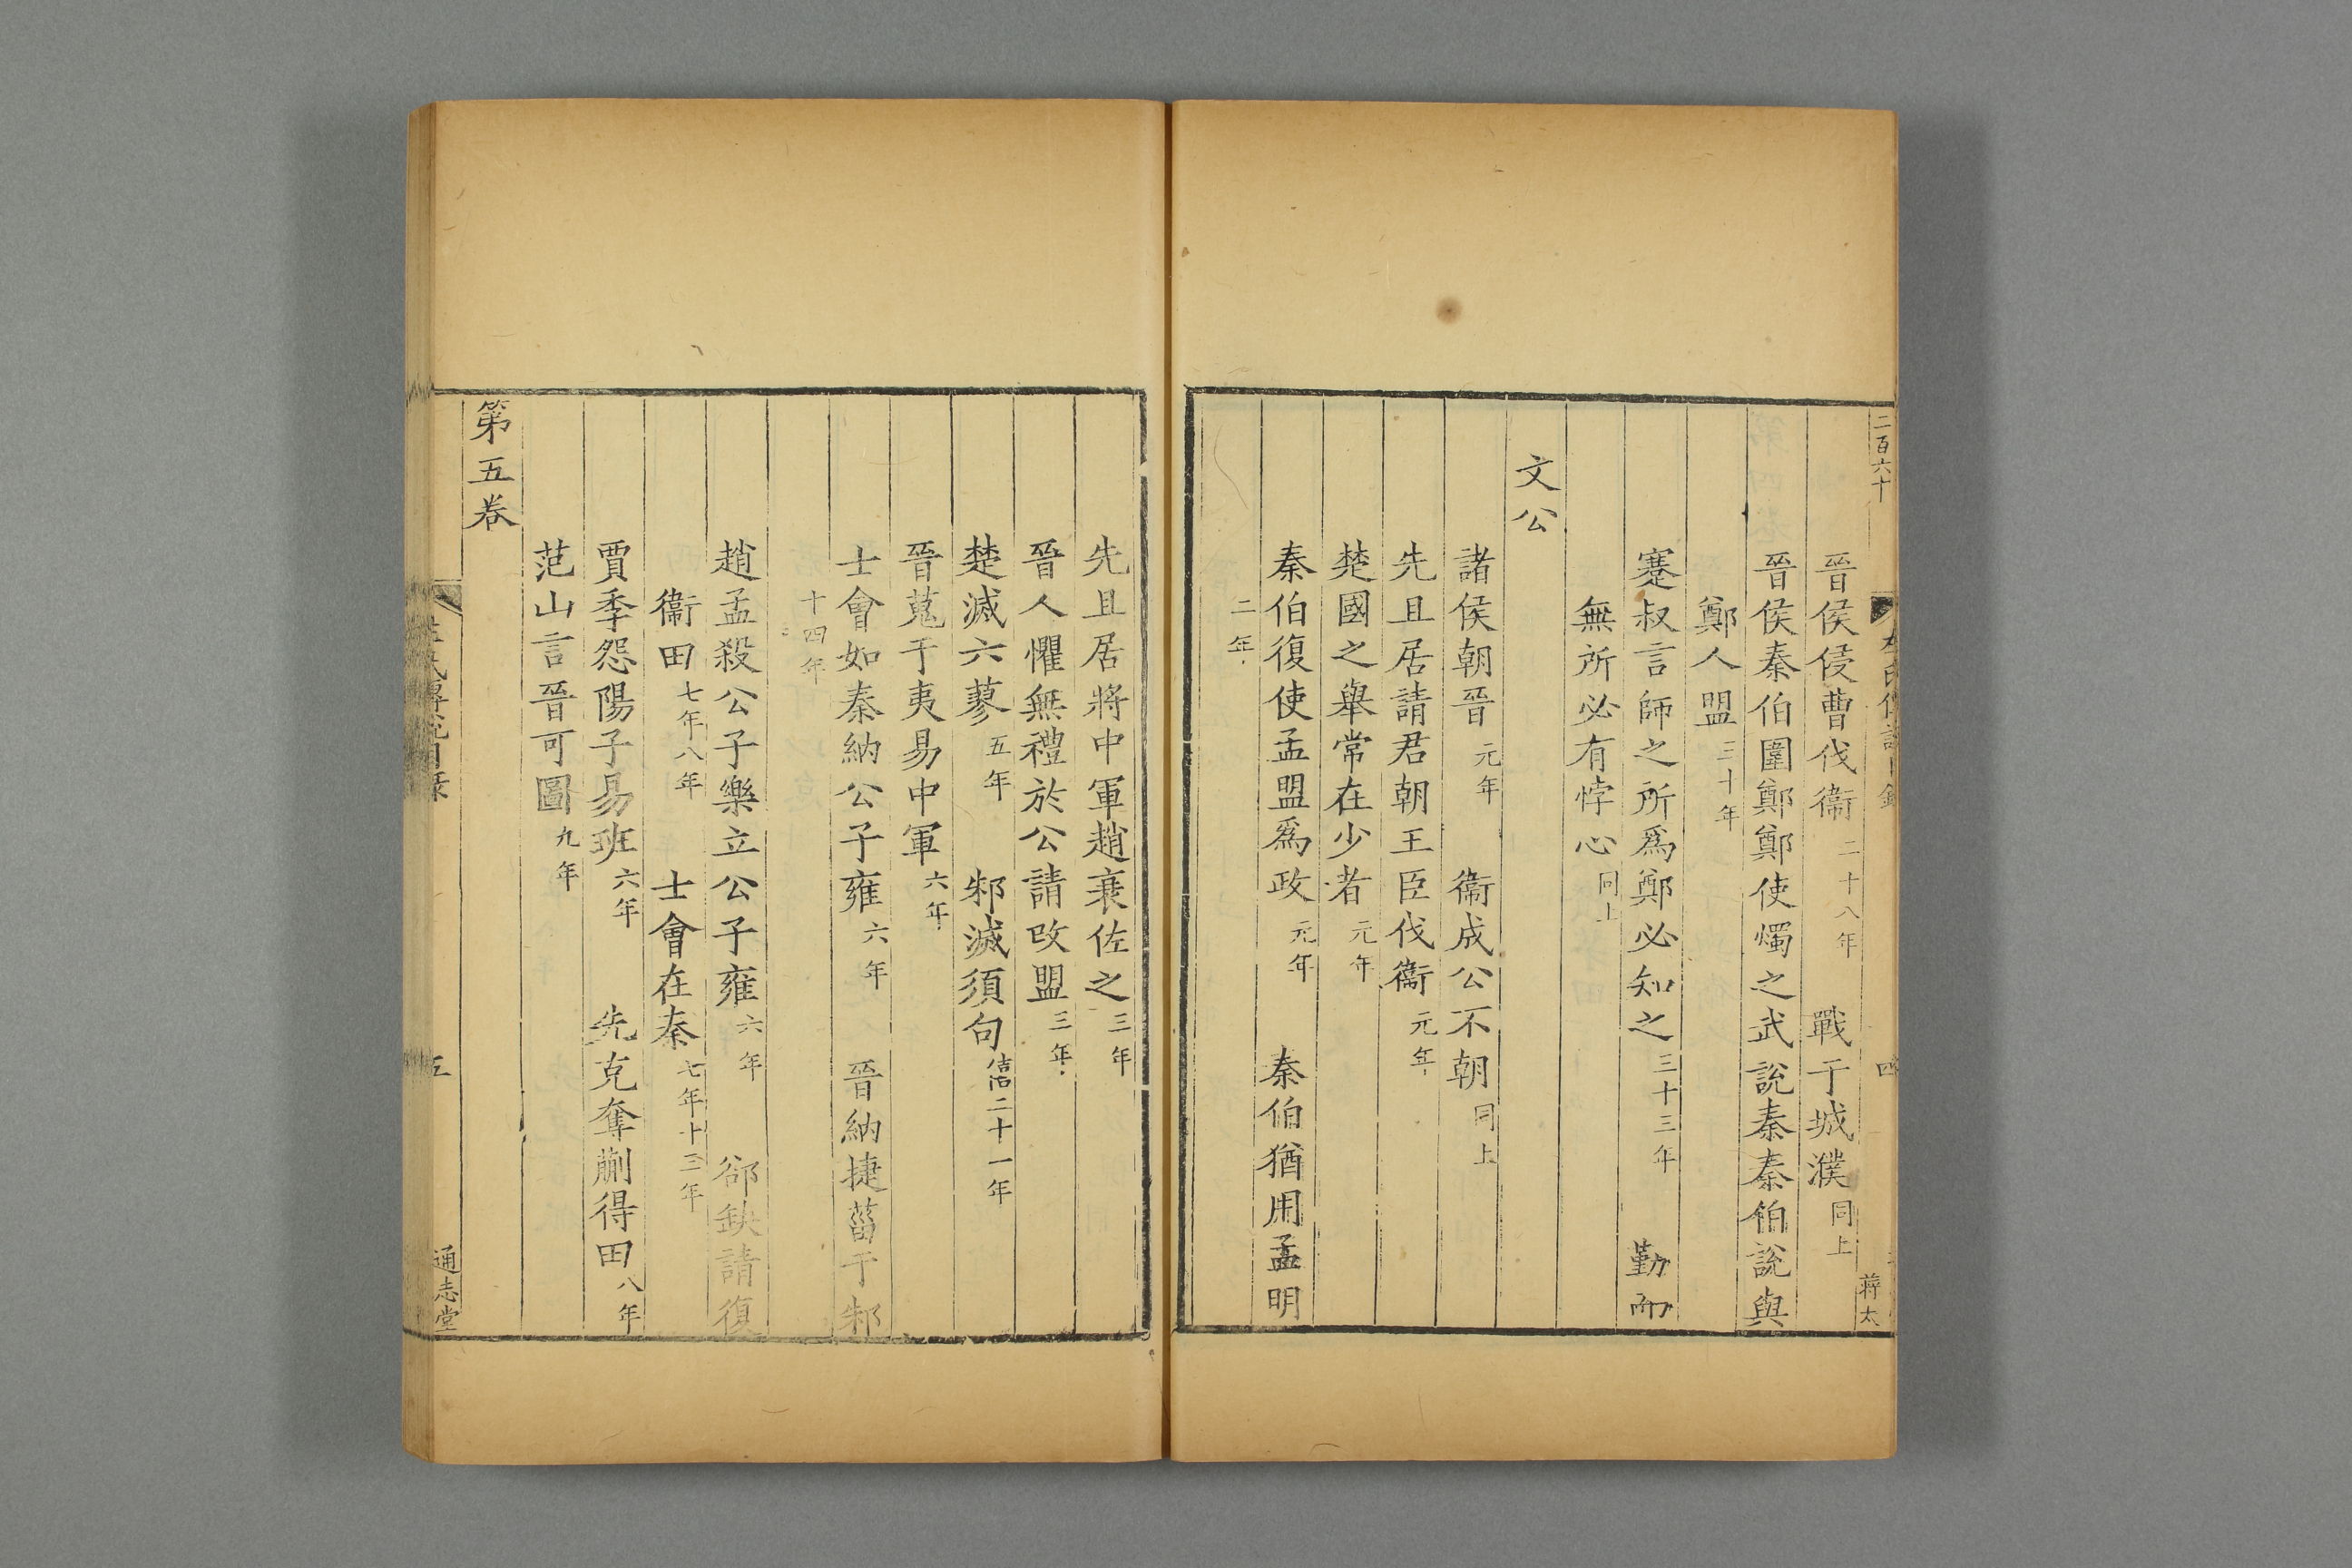 二百六十
四
蔣太
晉侯侵曹伐衞二十八年　戰于城濮同上
晉侯秦伯圍鄭鄭使燭之武說秦秦伯說與
鄭人盟三十年
蹇叔言師之所爲鄭必知之三十三年　勤而
無所必有悖心同上
文公
諸侯朝晉元年　衞成公不朝同上
先且居請君朝王臣伐衞元年
楚國之舉常在少者元年
秦伯復使孟盟爲政元年　秦伯猶用孟明
二年
先且居將中軍趙衰佐之三年
晉人懼無禮於公請改盟三年
楚滅六蓼五年　邾滅須句僖二十一年
晉蒐于夷易中軍六年
士會如秦納公子雍六年　晉納捷菑于邾
十四年
趙孟殺公子樂立公子雍六年　郤缺請復
衞田七年八年　士會在秦七年十三年
賈季怨陽子易班六年　先克奪蒯得田八年
范山言晉可圖九年
第五卷
左氏傳說目錄
五
通志堂